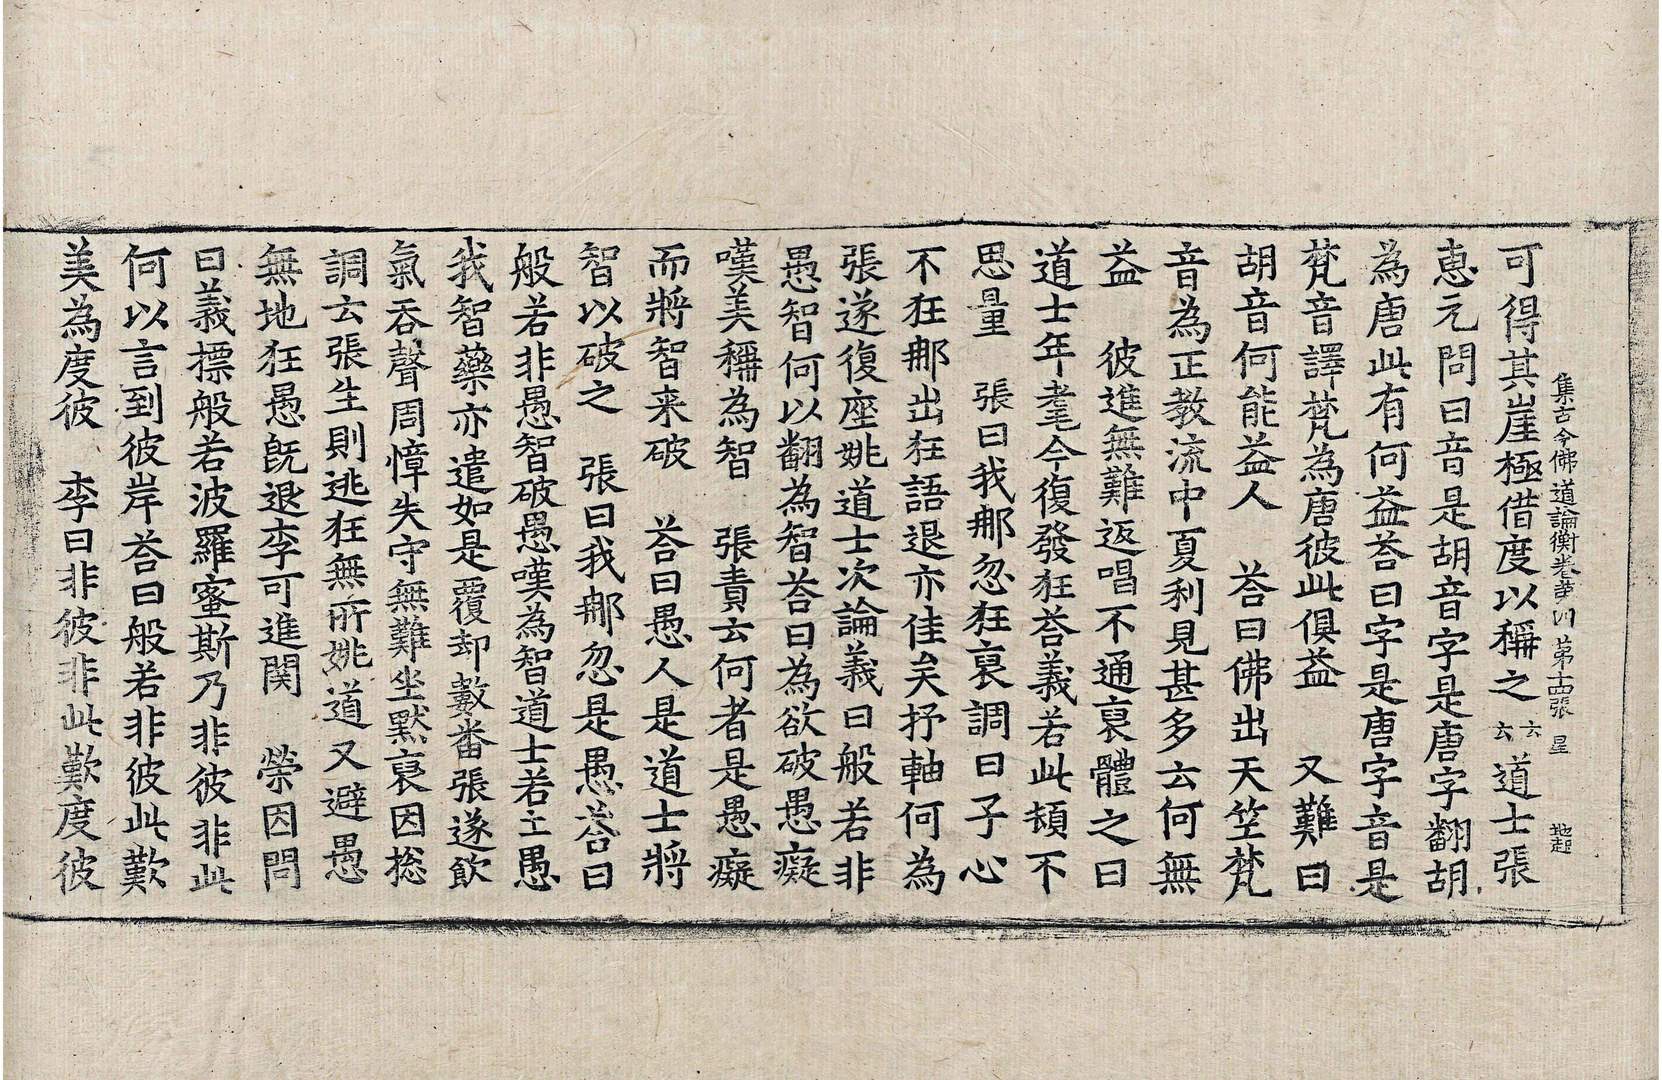 集古今佛道論衡卷苐四 第十四張 星 趙
可得其崖極借度以稱之云云道士張
惠元問曰音是胡音字是唐字翻胡
為唐此有何益荅曰字是唐字音是
梵音譯梵為唐彼此俱益 又難曰
胡音何能益人 荅曰佛出天竺梵
音為正教流中夏利見甚多云何無
益 彼進無難返唱不通裒體之曰
道士年耄今復發狂荅義若此頓不
思量 張曰我那忽狂裒調曰子心
不狂那出狂語退亦佳矣抒軸何為
張遂復座姚道士次論義曰般若非
愚智何以翻為智荅曰為欲破愚癡
嘆美稱為智 張責云何者是愚癡
而將智来破 荅曰愚人是道士將
智以破之 張曰我那忽是愚荅曰
般若非愚智破愚嘆為智道士若主愚
我智藥亦遣如是覆却數番張遂飲
氣吞聲周慞失守無難坐默裒因捴
調云張生則逃狂無所姚道又避愚
無地狂愚旣退李可進關 榮因問
曰義摽般若波羅蜜斯乃非彼非此
何以言到彼岸荅曰般若非彼此歎
美為度彼 李曰非彼非此歎度彼